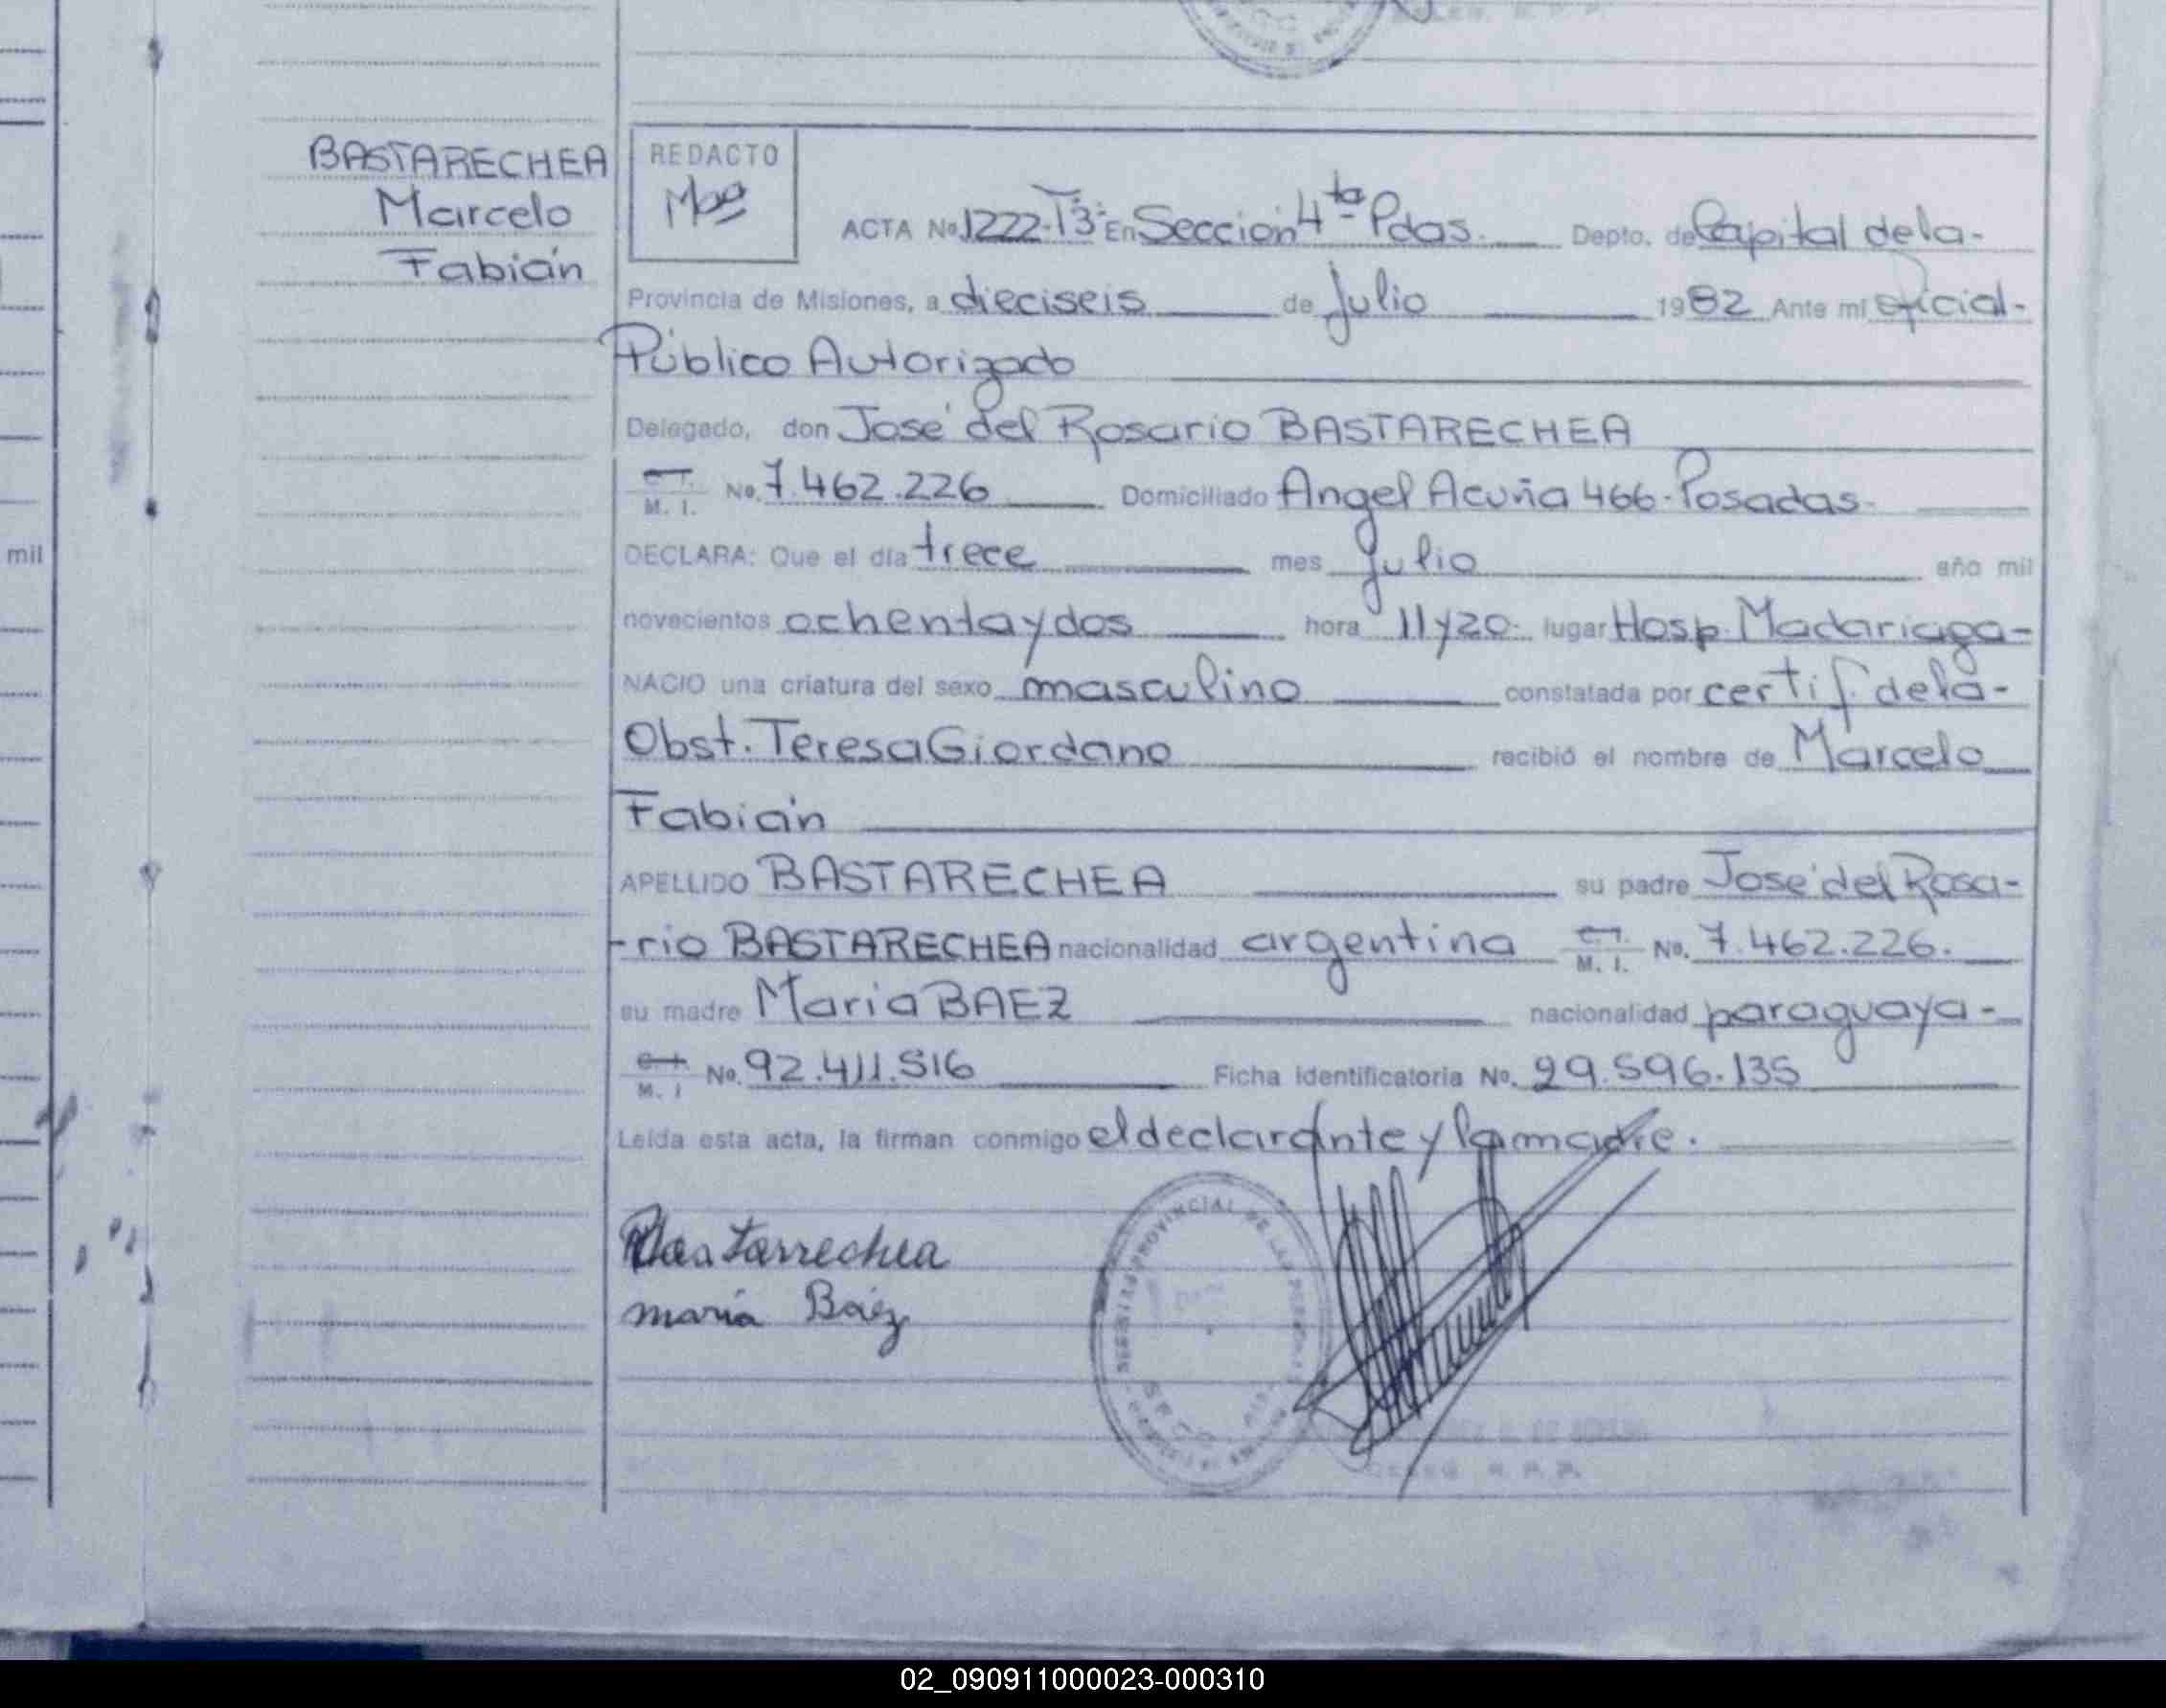 BASTARECHEA
Marcelo
Fabián
REDACTO
ACTA No 1222-T3º En Sección 4ta Pdas. Depto. de Capital de la-
Provincia de Misiones, a dieciseis de Julio 1982 Ante mi oficial-
Público Autorizado
Delegado, don José del Rosario BASTARECHEA
C.I. M. I. No. 7.462.226 Domiciliado Angel Acuña 466-Posadas-
mil
DECLARA: Que el día trece mes julio año mil
novecientos ochenta y dos hora 11 y 20- lugar Hosp. Madariaga-
NACIO una criatura del sexo masculino constatada por certif. de la-
Obst. Teresa Giordano recibió el nombre de Marcelo
Fabián
APELLIDO BASTARECHEA su padre José del Rosa-
-rio BASTARECHEA nacionalidad argentina C.I. M. I. No. 7.462.226.
su madre María BAEZ nacionalidad paraguaya-
C.I. M. I No. 92.411.516 Ficha identificatoria No. 29.596.135
Leída esta acta, la firman conmigo el declarante y la madre.
Bastarrechea
maría Báez
PROVINCIAL DE LAS PERSONAS
02_090911000023-000310